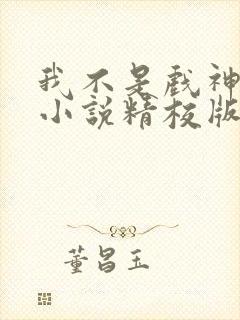 我不是戏神
小说精校版
董昌玉